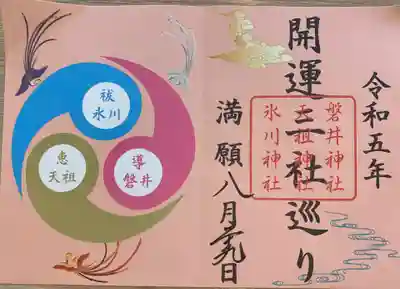 令和五年
開運三社巡り
磐井神社
天祖神社
氷川神社
満願八月 九日
祓
氷川
導
磐井
恵
天祖